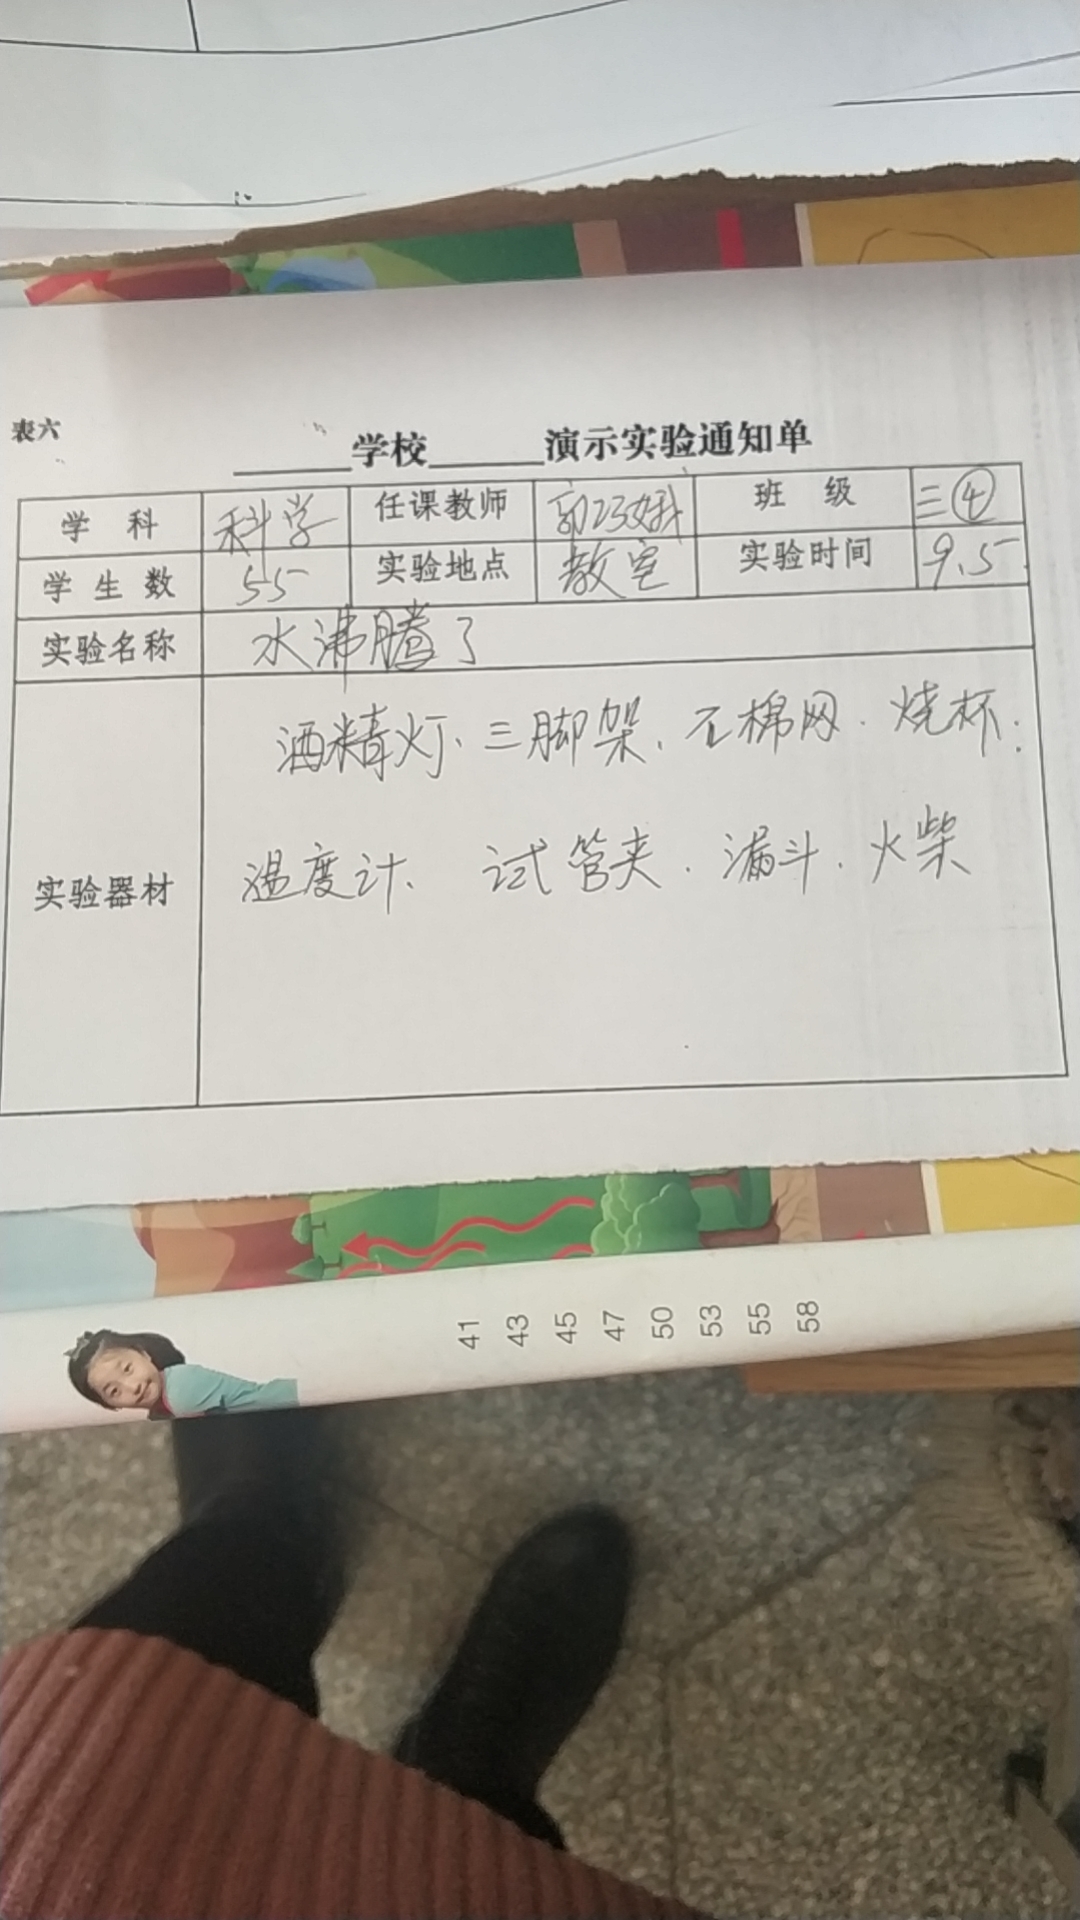 表六
______学校______演示实验通知单
学 科 科学 任课教师 郭巧娥 班 级 三④
学生数 55 实验地点 教室 实验时间 9.5
实验名称 水沸腾了
酒精灯、三脚架、石棉网、烧杯、
实验器材 温度计、试管夹、漏斗、火柴
41
43
45
47
50
53
55
58